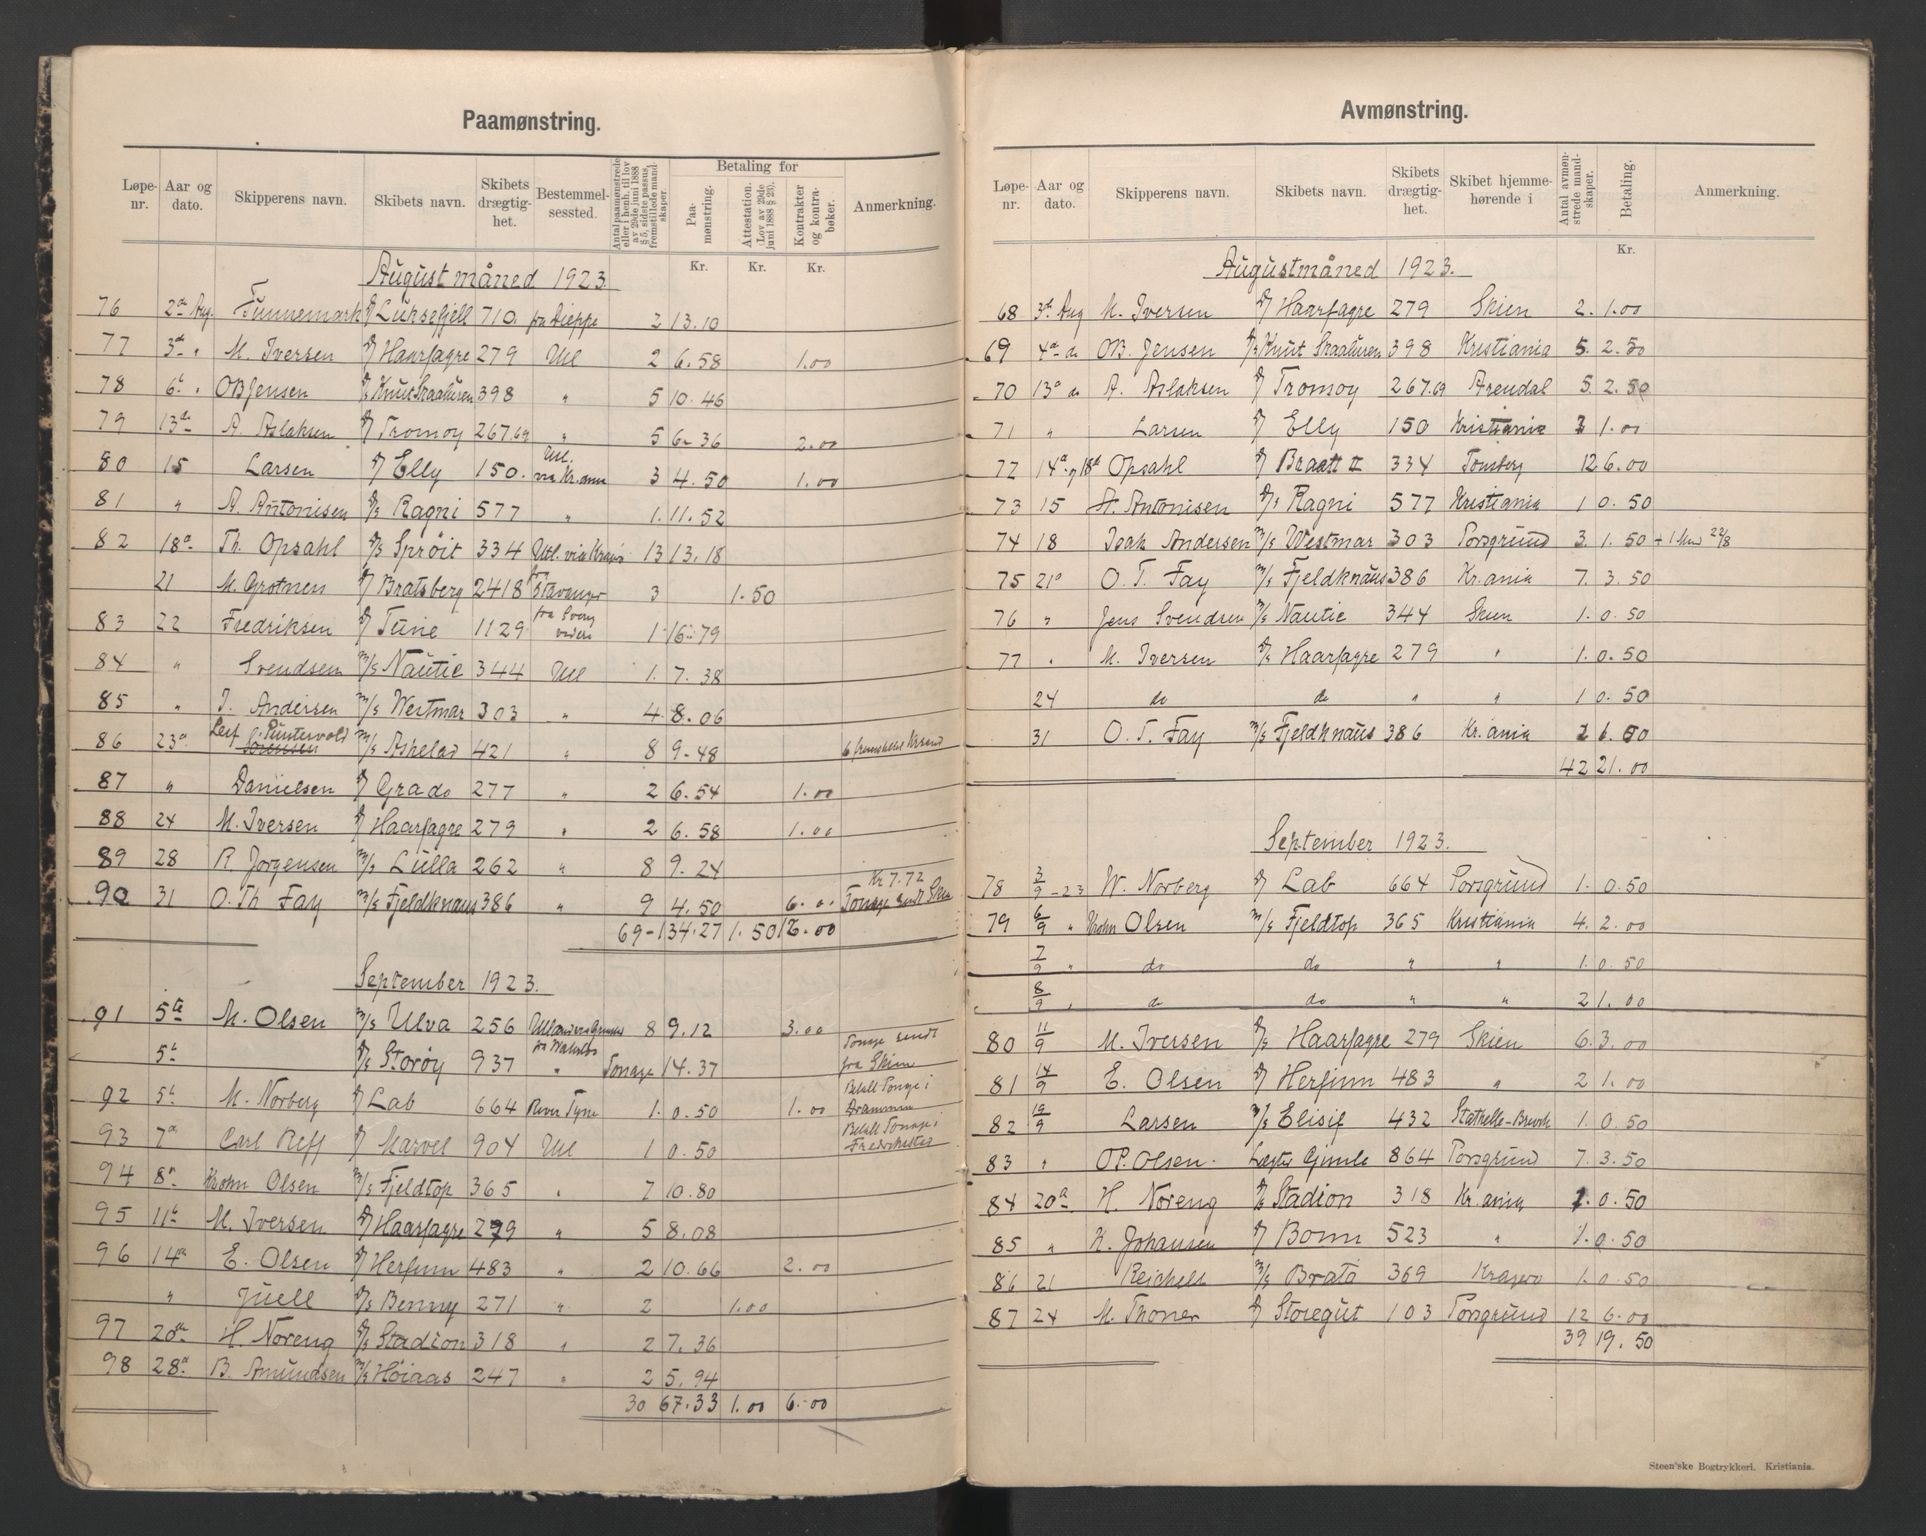 Paamønstring.
Løpe-nr. Aar og dato. Skipperens navn. Skibets navn. Skibets drægtighet. Bestemmelsessted. Antal paamønstrede eller i henh. til lov av 29de juni 1888 § 5, sidste passus, fremstillede mandskaper. Betaling for Paamønstring. Attestation. (Lov av 29de juni 1888 § 23). Kontrakter og kontrabøker. Anmerkning.
Kr. Kr. Kr.
August måned 1923
76 2de Aug. Tunnemark D/ Luksefjell 710. fra Dieppe 2 13.10
77 3de " M. Iversen D/ Haarfagre 279 Utl 2 6.58 1.00
78 6t " OB Jensen D/s Knut Skaaluren 398 " 5 10.46
79 13de A. Aslaksen D/ Tromøy 267.69 " 5 6-36 2.00
80 15 Larsen D/ Elly 150. Utl. via Kr.ania 3 4.50 1.00
81 " A. Antonisen D/s Ragni 577 " 1. 11.52
82 18de Th. Opsahl D/s Sprøit 334 Utl. via 13 13.18
21 M. Grotnes D/ Bratsberg 2418 fra Stavanger 3 1.50
83 22 Fredriksen D/ Tune 1129 fra Sverg 1 16.79
84 " Svendsen M/s Nautic 344 Utl 1. 7.38
85 " I. Andersen M/s Westmar 303 " 4 8.06
86 23de Leif Puntervold Sørensen M/s Askelad 421 " 8 9-48
87 " Danielsen D/ Grado 277 " 2 6.54 1.00
88 24 M. Iversen D/ Haarfagre 279 " 2 6.58 1.00
89 28 R. Jørgensen M/s Lulla 262 " 8 9.24
90 31 O. Th Fay M/s Fjeldknaus 386 " 9 4.50 6.00 Kr 7.72 Tonage sendt Skien
69 - 134.27 1.50 12.00
September 1923.
91 5te M. Olsen M/s Ulva 256 8 9.12 3.00
5t D/s Storøy 937 " Tonage 14.37 Tonage sendt fra Skien
92 5t M. Norberg D/ Lab 664 River Tyne 1. 0.50 1.00 Betalt Tonage i Drammen
93 7de Carl Reff D/ Marvel 904 Utl 1 0.50 Betalt Tonage i Fredrikstad
94 8de Krohn Olsen M/s Fjeldtop 365 " 7 10.80
95 11t M. Iversen D/ Haarfagre 279 " 5 8.08
96 14de E. Olsen D/ Herfinn 483 " 2 10.66 2.00
" Juell D/s Benny 271 " 2 1.00
97 20de H. Noreng D/s Stadion 318 " 2 7.36
98 28de B. Amundsen M/s Høiaas 247 " 2 5.94
30 67.33 1.00 6.00
Avmønstring.
Løpe-nr. Aar og dato. Skipperens navn. Skibets navn. Skibets drægtighet. Skibet hjemmehørende i Antal avmønstrede mandskaper. Betaling. Anmerkning.
Kr.
Augustmåned 1923.
68 3de Aug M. Iversen D/ Haarfagre 279 Skien 2. 1.00
69 4de do OB. Jensen D/s Knut Skaaluren 398 Kristiania 5. 2.50
70 13de do A. Aslaksen D/ Tromøy 267.69 Arendal 5. 2.50
71 " Larsen D/ Elly 150 Kristiania 3 1.00
72 14de og 18de Opsahl D/ Braatt II 334 Tønsberg 12 6.00
73 15 A. Antonisen D/s Ragni 577 Kristiania 1 0.50
74 18 Isak Andersen M/s Westmar 303 Porsgrund 3. 1.50 + 1 Mand 22/8
75 21de O. T. Fay M/s Fjeldknaus 386 Kr.ania 7. 3.50
76 " Jens Svendsen M/s Nautic 344 Skien 1. 0.50
77 " M. Iversen D/s Haarfagre 279 " 1. 0.50
24 do do " " 1 0.50
31 O. T. Fay M/s Fjeldknaus 386 Kr.ania
42 21.00
September 1923.
78 3/9-23 W. Norberg D/ Lab 664 Porsgrund 1. 0.50
79 6/9 " Krohn Olsen M/s Fjeldtop 365 Kristiania 4. 2.00
7/9 " do do " " 1. 0.50
8/9 " do do " " 2 1.00
80 11/9 M. Iversen D/s Haarfagre 279 Skien 6. 3.00
81 14/9 E. Olsen D/ Herfinn 483 " 2 1.00
82 19/9 Larsen M/s Elisif 432 Stathelle-Brevik 1. 0.50
83 " O.P. Olsen. Lægter Gimle 864 Porsgrund 7. 3.50
84 20de H. Noreng D/s Stadion 318 Kr.ania 1. 0.50
85 " K. Johansen D/ Bonn 523 " 1. 0.50
86 21 Reichelt M/s Brato 369 Kragerø 1. 0.50
87 24 M. Thoner D/ Storegut 103 Porsgrund 12 6.00
39 19.50
Steen'ske Bogtrykkeri. Kristiania.